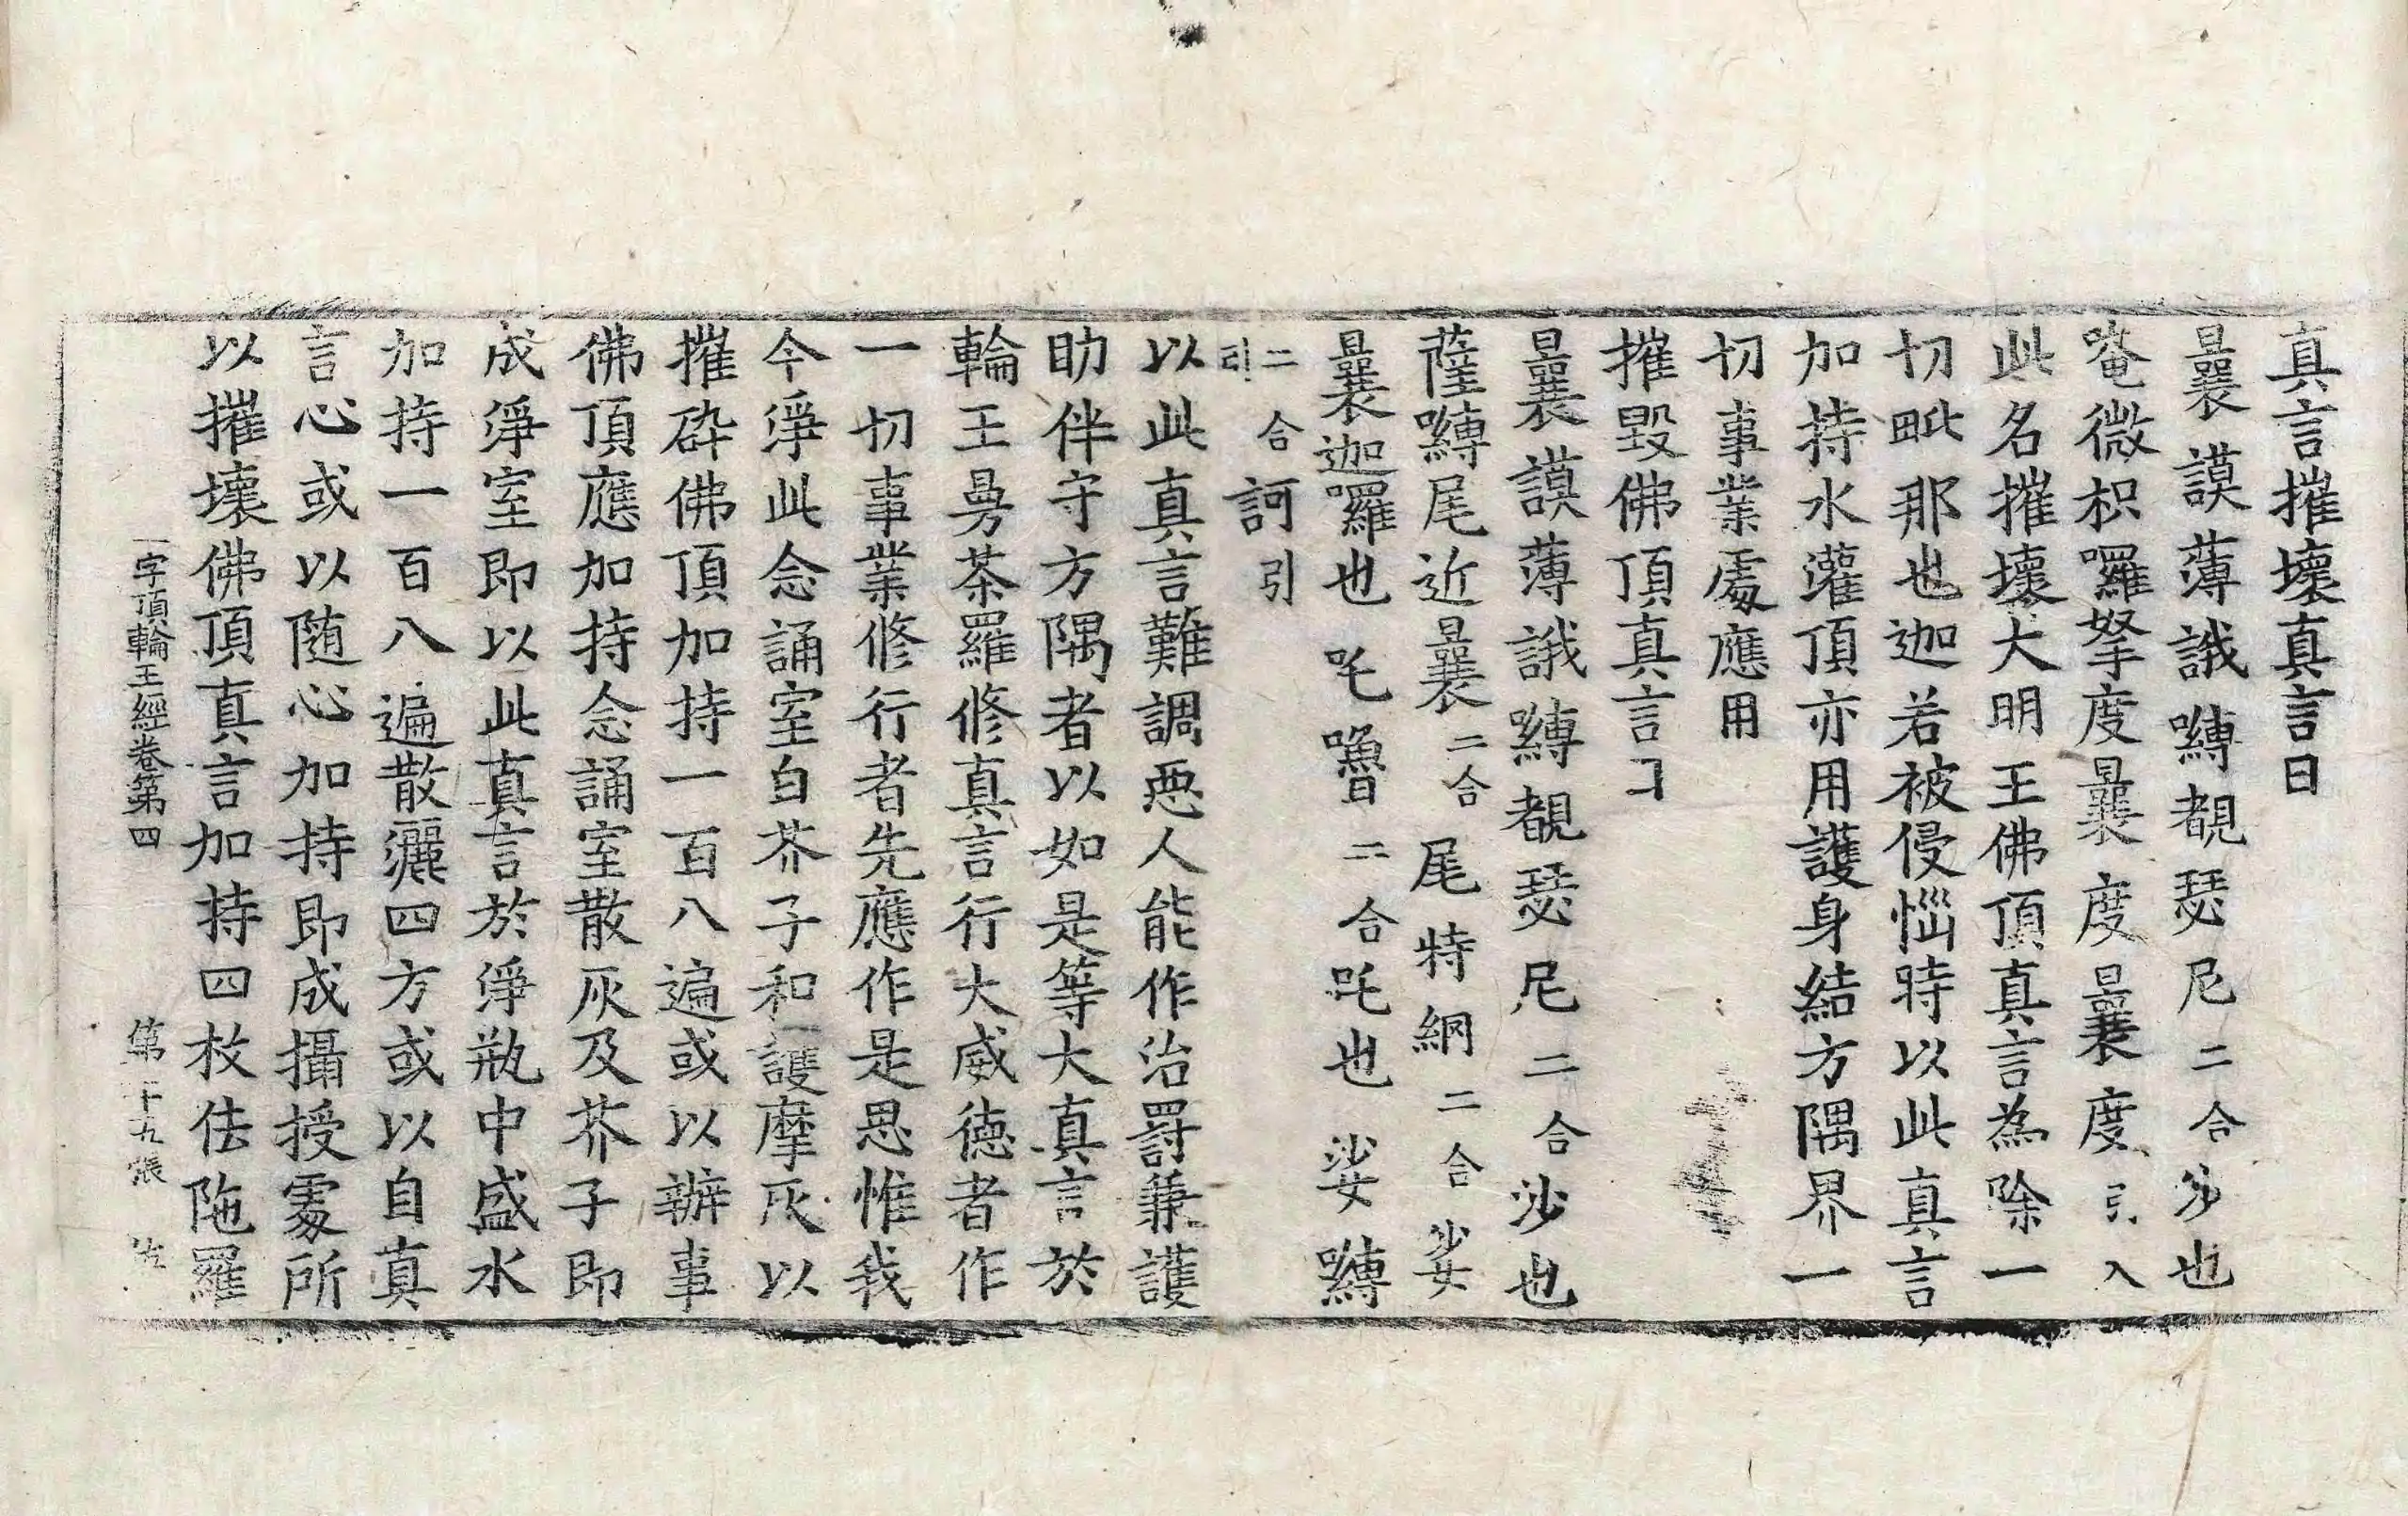 真言摧壞真言曰
曩謨薄誐嚩覩瑟尼二合沙也
唵微枳囉拏度曩度曩度引入
此名摧壞大明王佛頂真言為除一
切毗那也迦若被侵惱時以此真言
加持水灌頂亦用護身結方隅界一
切事業處應用
摧毀佛頂真言
曩謨薄誐嚩覩瑟尼二合沙也
薩嚩尾近曩二合尾特網二合娑
曩迦囉也吒嚕二合吒也娑嚩
二合
引
訶引
以此真言難調惡人能作治罰兼護
助伴守方隅者以如是等大真言於
輪王曼荼羅修真言行大威德者作
一切事業修行者先應作是思惟我
今淨此念誦室白芥子和護摩灰以
摧碎佛頂加持一百八遍或以辦事
佛頂應加持念誦室散灰及芥子即
成淨室即以此真言於淨瓶中盛水
加持一百八遍散灑四方或以自真
言心或以随心加持即成攝授處所
以摧壞佛頂真言加持四枚佉陁羅
一字頂輪王經卷第四 第十九張